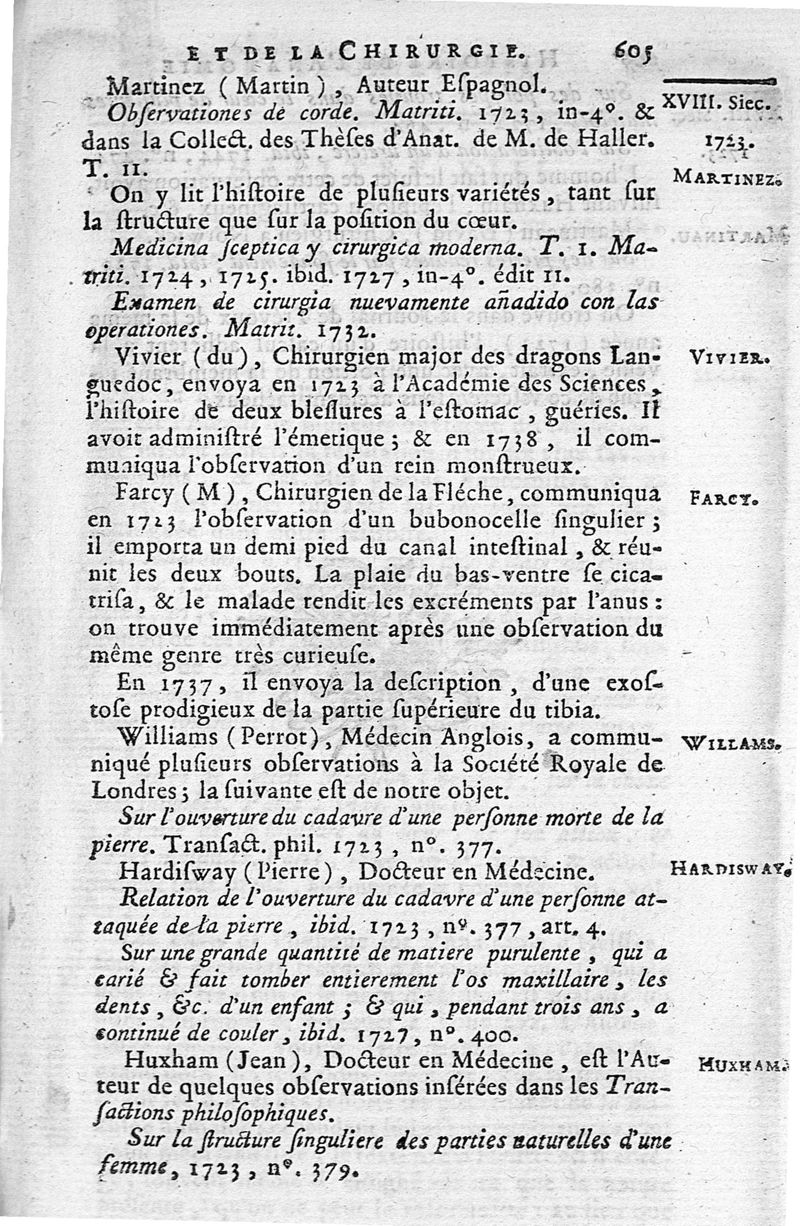 ET DE LA CHIRURGIE. 605
Martinez (Martin), Auteur Eſpagnol.
XVIII. Siec.
Obſervationes de corde. Matriti. 1723, in-4°. &
dans la Collect. des Thèſes d'Anat. de M. de Haller.
1723.
T. 11.
MARTINEZ.
On y lit l'hiſtoire de pluſieurs variétés, tant ſur
la ſtructure que ſur la poſition du cœur.
Medicina ſceptica y cirurgica moderna. T. 1. Ma-
triti. 1724, 1725. ibid. 1727, in-4°. édit 11.
Examen de cirurgia nuevamente añadido con las
operationes. Matrit. 1732.
Vivier (du), Chirurgien major des dragons Lan-
VIVIER.
guedoc, envoya en 1723 à l'Académie des Sciences,
l'hiſtoire de deux bleſſures à l'eſtomac, guéries. Il
avoit adminiſtré l'émetique; & en 1738, il com-
muniqua l'obſervation d'un rein monſtrueux.
Farcy (M), Chirurgien de la Fléche, communiqua
FARCY.
en 1723 l'obſervation d'un bubonocelle ſingulier;
il emporta un demi pied du canal inteſtinal, & réu-
nit les deux bouts. La plaie du bas-ventre ſe cica-
triſa, & le malade rendit les excréments par l'anus:
on trouve immédiatement après une obſervation du
même genre très curieuſe.
En 1737, il envoya la deſcription, d'une exoſ-
toſe prodigieux de la partie ſupérieure du tibia.
Williams (Perrot), Médecin Anglois, a commu-
WILLAMS.
niqué pluſieurs obſervations à la Société Royale de
Londres; la ſuivante eſt de notre objet.
Sur l'ouverture du cadavre d'une perſonne morte de la
pierre. Tranſact. phil. 1723, n°. 377.
Hardiſway (Pierre), Docteur en Médecine.
HARDISWAY.
Relation de l'ouverture du cadavre d'une perſonne at-
taquée de la pierre, ibid. 1723, n°. 377, art. 4.
Sur une grande quantité de matiere purulente, qui a
carié & fait tomber entierement l'os maxillaire, les
dents, &c. d'un enfant; & qui, pendant trois ans, a
continué de couler, ibid. 1727, n°. 400.
Huxham (Jean), Docteur en Médecine, eſt l'Au-
HUXHAM.
teur de quelques obſervations inſérées dans les Tran-
ſactions philoſophiques.
Sur la ſtructure ſinguliere des parties naturelles d'une
femme, 1723, n°. 379.